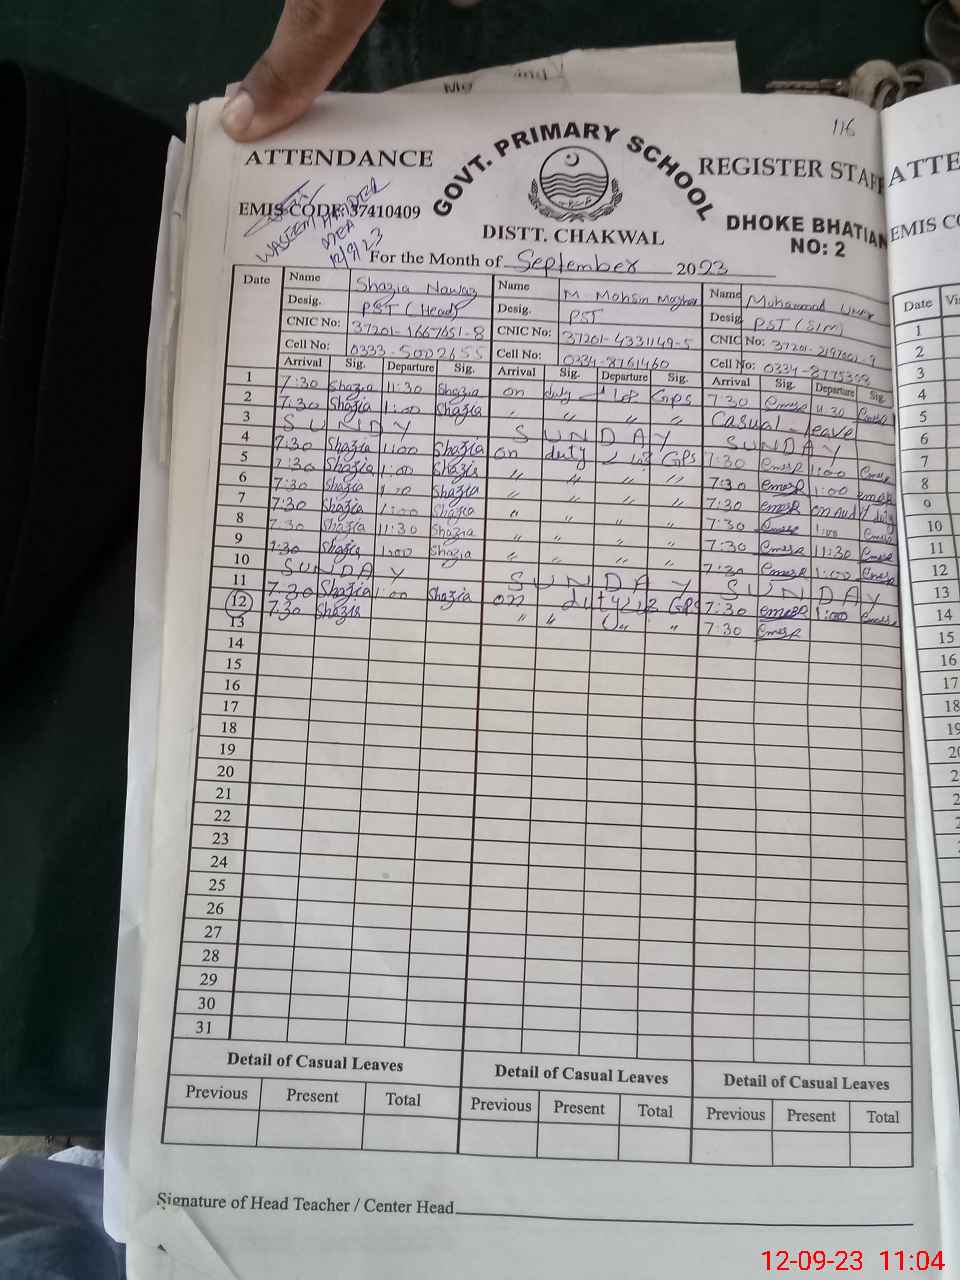 116
GOVT. PRIMARY SCHOOL
ATTENDANCE REGISTER STAFF
EMIS CODE: 37410409
DHOKE BHATIAN
NO: 2
WASEEM HAIDER
MEA
12/9/23
DISTT. CHAKWAL
For the Month of September 2023
Date Name Shazia Nawaz Name M Mohsin Mazhar Name Muhammad Umer
Desig. PST (Head) Desig. PST Desig PST (SIM)
CNIC No: 37201-1667651-8 CNIC No: 37201-4331149-5 CNIC No:
Cell No: Cell No: 0334-8761460 Cell No:
Arrival Sig. Departure Sig. Arrival Sig. Departure Sig. Arrival Sig. Departure Sig.
1 7:30 Shazia 11:30 Shazia on duty GPS 7:30 11:30
2 7:30 Shazia 1:00 Shazia " " " " Casual leave
3 SUNDAY SUNDAY SUNDAY
4 7:30 Shazia 1:00 Shazia on duty GPS 7:30 1:00
5 7:30 Shazia 1:00 Shazia " " " " 7:30 1:00
6 7:30 Shazia Shazia " " " " 7:30 duty
7 7:30 Shazia 1:00 Shazia " " " " 7:30 1:00
8 7:30 Shazia 11:30 Shazia " " " " 7:30 11:30
9 7:30 Shazia 1:00 Shazia " " " " 7:30 1:00
10 SUNDAY SUNDAY SUNDAY
11 7:30 Shazia 1:00 Shazia on duty GPS 7:30 1:00
12 7:30 Shazia " " " 7:30
13
14
15
16
17
18
19
20
21
22
23
24
25
26
27
28
29
30
31
Detail of Casual Leaves Detail of Casual Leaves Detail of Casual Leaves
Previous Present Total Previous Present Total Previous Present Total
Signature of Head Teacher / Center Head
ATTE
EMIS CO
Date
1
2
3
4
5
6
7
8
9
10
11
12
13
14
15
16
17
18
19
12-09-23 11:04